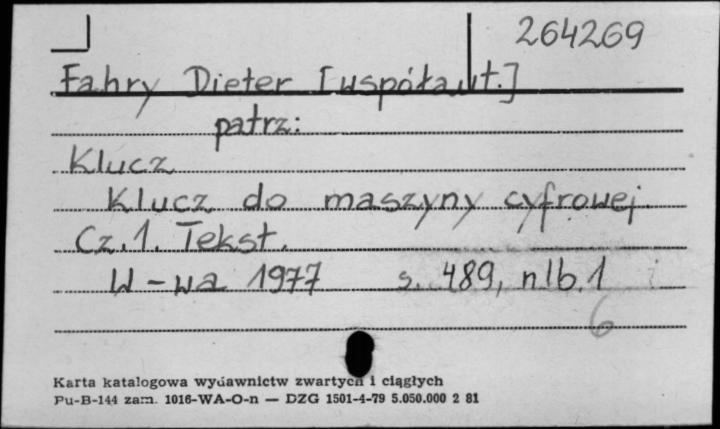 264269
Fahry Dieter [współaut.]
patrz:
Klucz
Klucz do maszyny cyfrowej.
Cz. 1. Tekst.
W-wa 1977 s. 489, nlb. 1
6
Karta katalogowa wydawnictw zwartych i ciągłych
Pu-B-144 zam. 1016-WA-O-n — DZG 1501-4-79 5.050.000 2 81